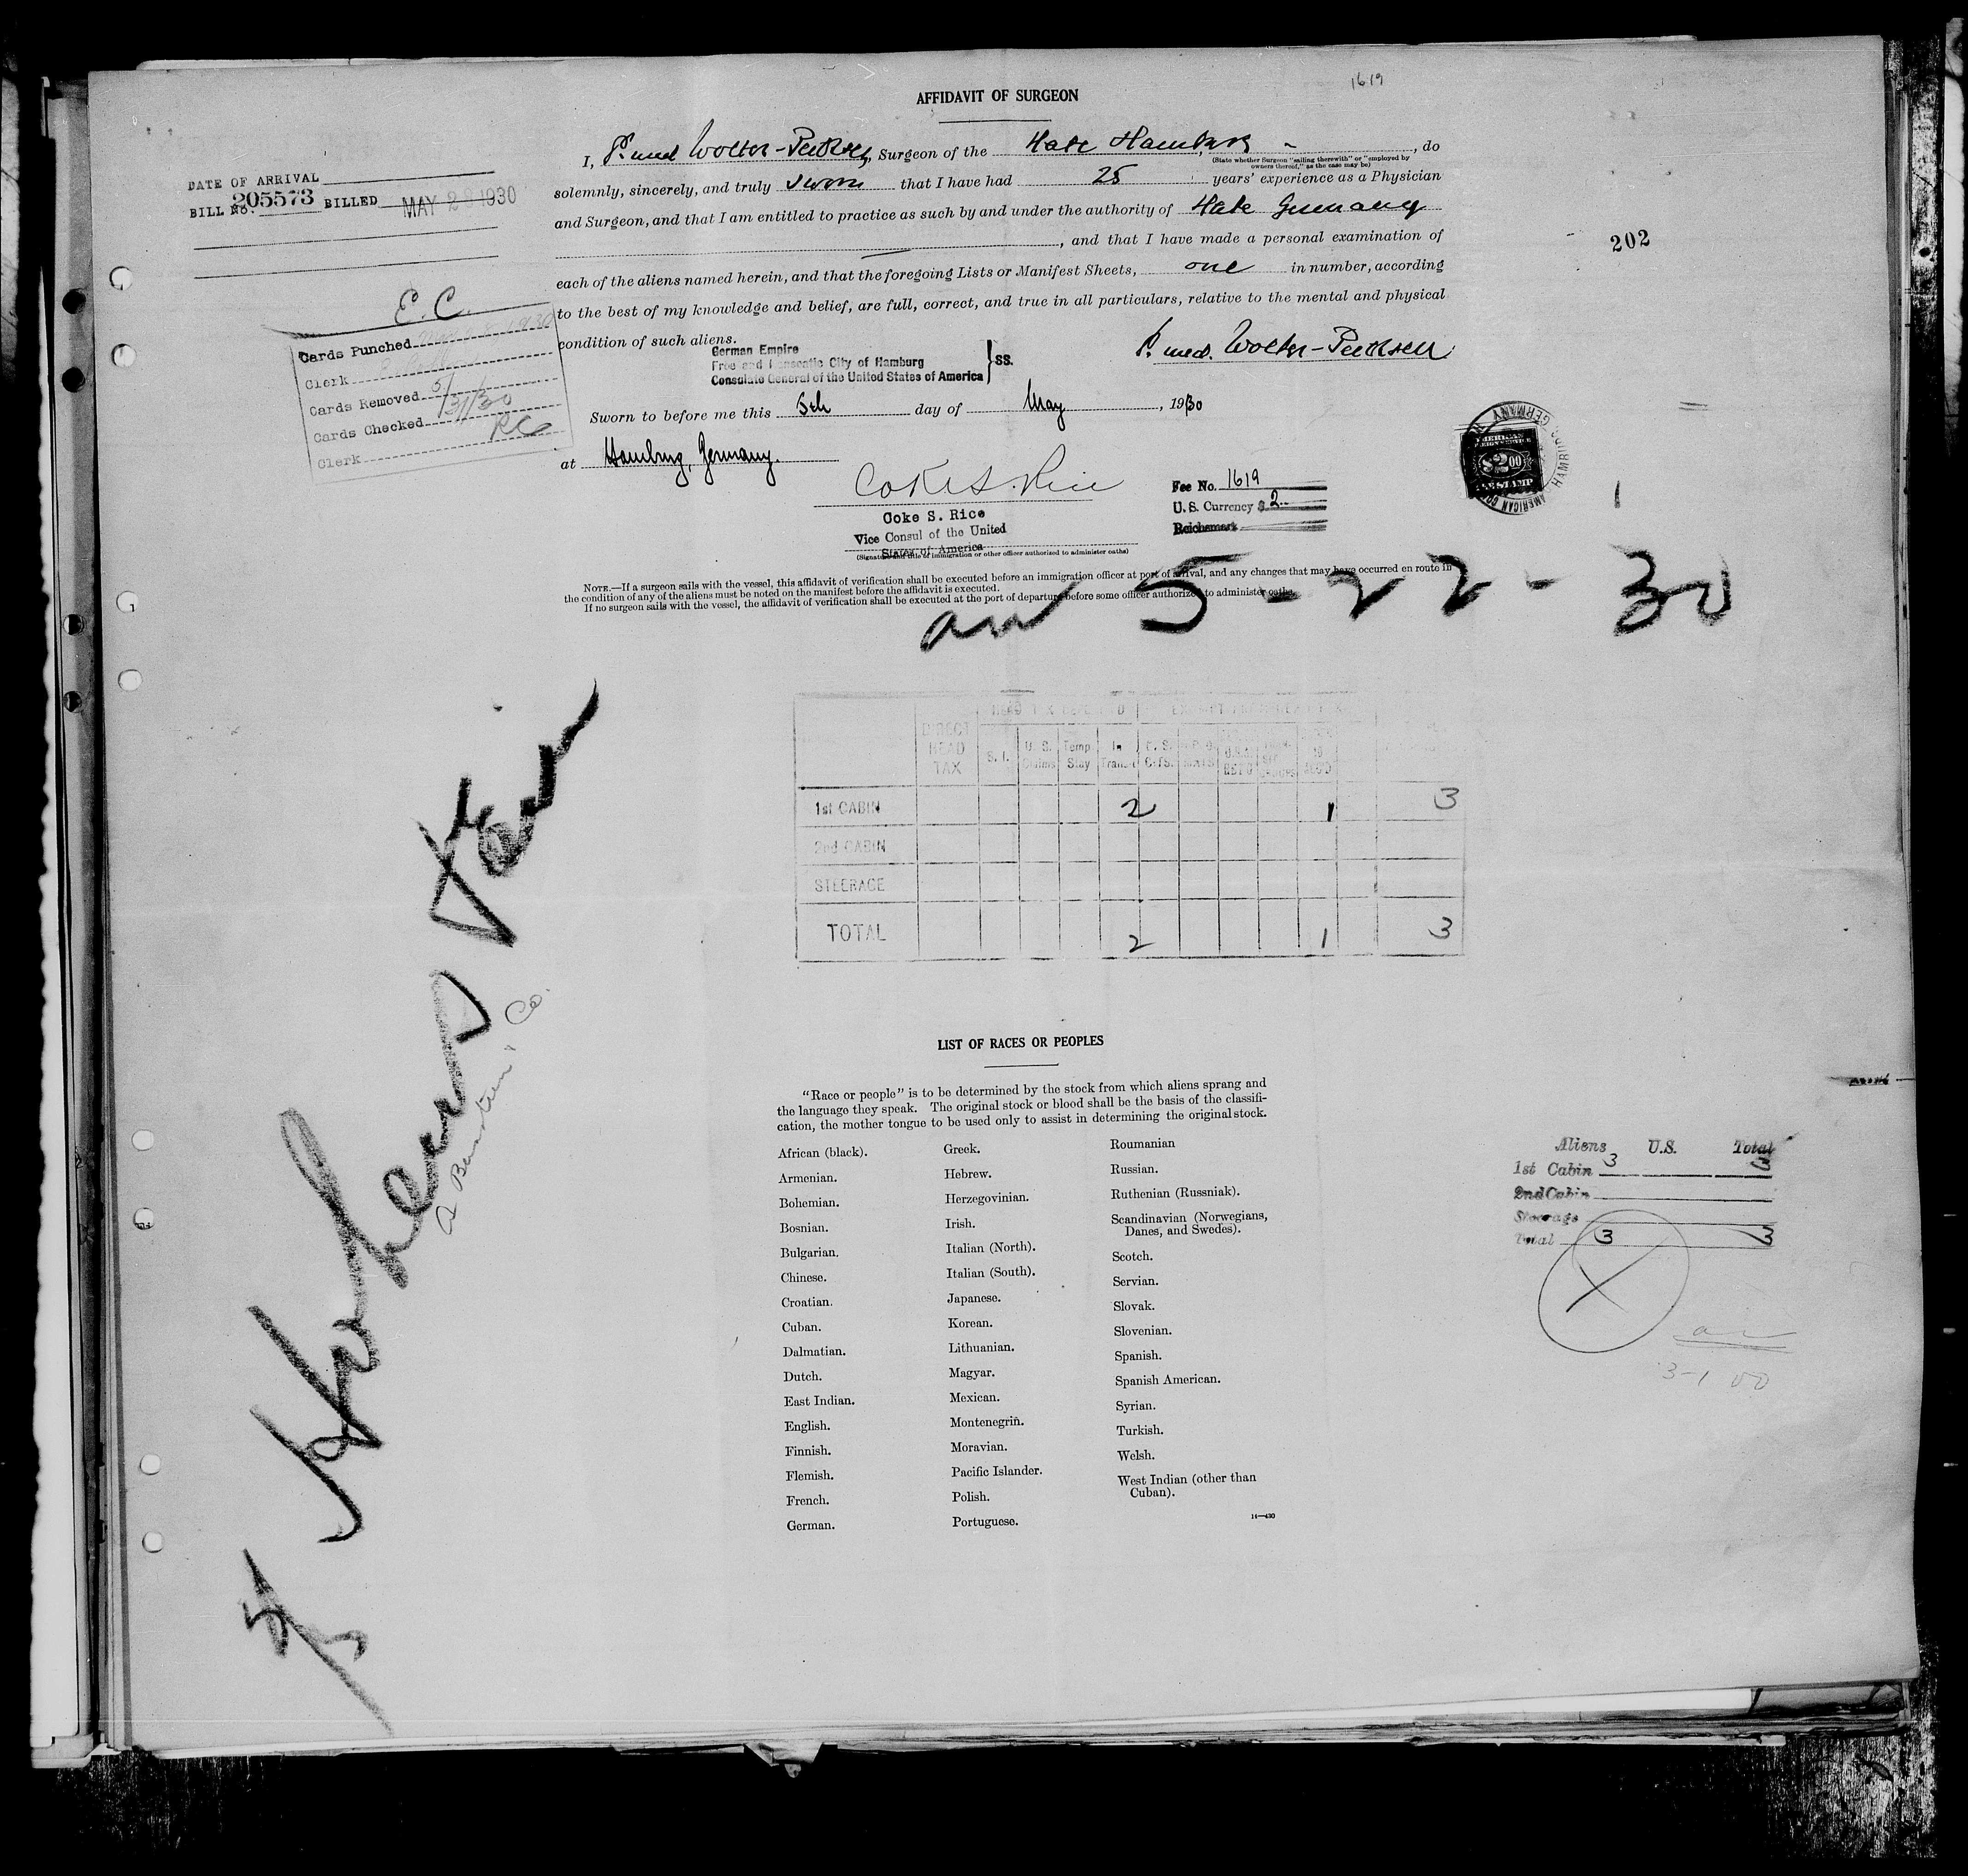 1619
AFFIDAVIT OF SURGEON
I, Wolter- , Surgeon of the , do
(State whether Surgeon "sailing therewith" or "employed by
owners thereof," as the case may be)
solemnly, sincerely, and truly sworn that I have had 25 years' experience as a Physician
and Surgeon, and that I am entitled to practice as such by and under the authority of Germany
, and that I have made a personal examination of
each of the aliens named herein, and that the foregoing Lists or Manifest Sheets, one in number, according
to the best of my knowledge and belief, are full, correct, and true in all particulars, relative to the mental and physical
condition of such aliens.
med. Wolter-
German Empire
Free and Hanseatic City of Hamburg
Consulate General of the United States of America } SS.
Sworn to before me this 5th day of May, 1930
at Hamburg, Germany.
Coke S. Rice
Coke S. Rice
Vice Consul of the United
States of America
(Signature and title of immigration or other officer authorized to administer oaths)
Fee No. 1619
U.S. Currency $ 2.
Reichsmark
AMERICAN
FOREIGN SERVICE
$2.00
FEE STAMP
HAMBURG, GERMANY
DATE OF ARRIVAL
BILL No. 205573 BILLED MAY 28 1930
E.C.
Cards Punched
Clerk
Cards Removed
5/31/30
Cards Checked
RC
Clerk
202
1
NOTE.—If a surgeon sails with the vessel, this affidavit of verification shall be executed before an immigration officer at port of arrival, and any changes that may have occurred en route in
the condition of any of the aliens must be noted on the manifest before the affidavit is executed.
If no surgeon sails with the vessel, the affidavit of verification shall be executed at the port of departure before some officer authorized to administer oaths.
5-22-30
DIRECT HEAD TAX
S. I.
U. S. Claims
Temp Stay
In Transit
1st CABIN 2 1 3
2nd CABIN
STEERAGE
TOTAL 2 1 3
Co.
LIST OF RACES OR PEOPLES
"Race or people" is to be determined by the stock from which aliens sprang and
the language they speak. The original stock or blood shall be the basis of the classifi-
cation, the mother tongue to be used only to assist in determining the original stock.
African (black).
Armenian.
Bohemian.
Bosnian.
Bulgarian.
Chinese.
Croatian.
Cuban.
Dalmatian.
Dutch.
East Indian.
English.
Finnish.
Flemish.
French.
German.
Greek.
Hebrew.
Herzegovinian.
Irish.
Italian (North).
Italian (South).
Japanese.
Korean.
Lithuanian.
Magyar.
Mexican.
Montenegrin.
Moravian.
Pacific Islander.
Polish.
Portuguese.
Roumanian
Russian.
Ruthenian (Russniak).
Scandinavian (Norwegians,
Danes, and Swedes).
Scotch.
Servian.
Slovak.
Slovenian.
Spanish.
Spanish American.
Syrian.
Turkish.
Welsh.
West Indian (other than
Cuban).
14—430
Aliens U.S. Total
1st Cabin 3 3
2nd Cabin
Steerage
Total 3 3